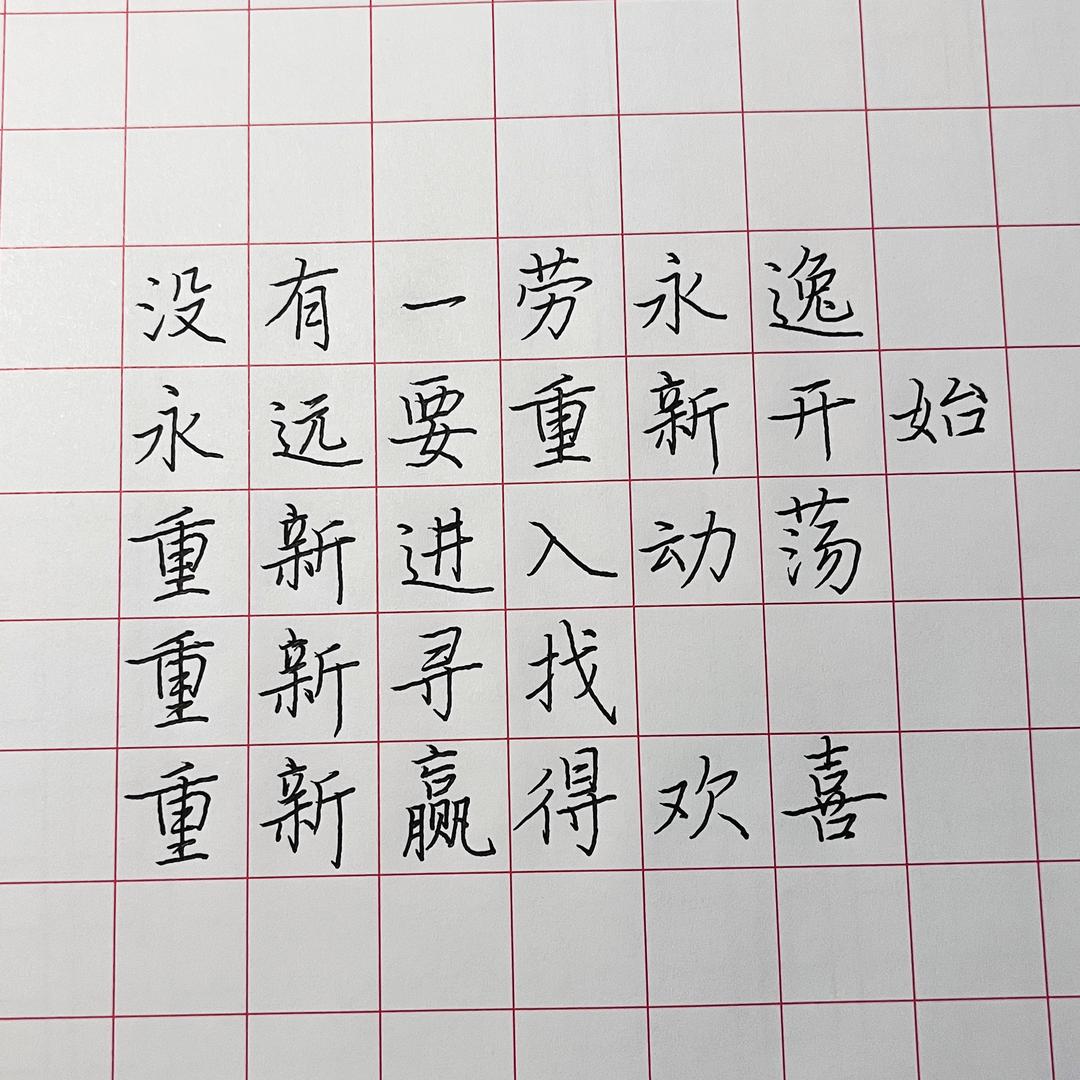 没有一劳永逸
永远要重新开始
重新进入动荡
重新寻找
重新赢得欢喜